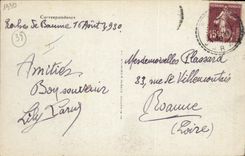 1930
Correspondance
Echo de Baume 16 Août 1930
35
Amitiés
Bon souvenir
Lily Parus
Mesdemoiselles Plassard
83, rue de Villemontais
Roanne
(Loire)
15